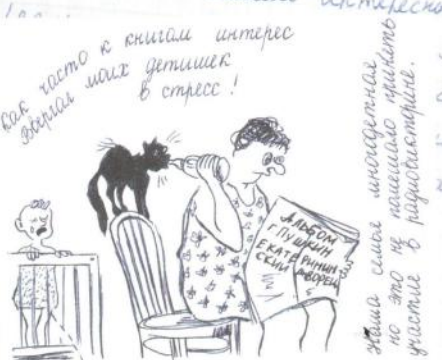 интересно
Как часто к книгам интерес
Ввергал моих детишек
в стресс!
АЛЬБОМ
Г. ПУШКИН
ЕКАТЕРИНИН
СКИЙ ДВОРЕЦ
Наша семья многодетная
но это не помешало принять
участие в радиовикторине.